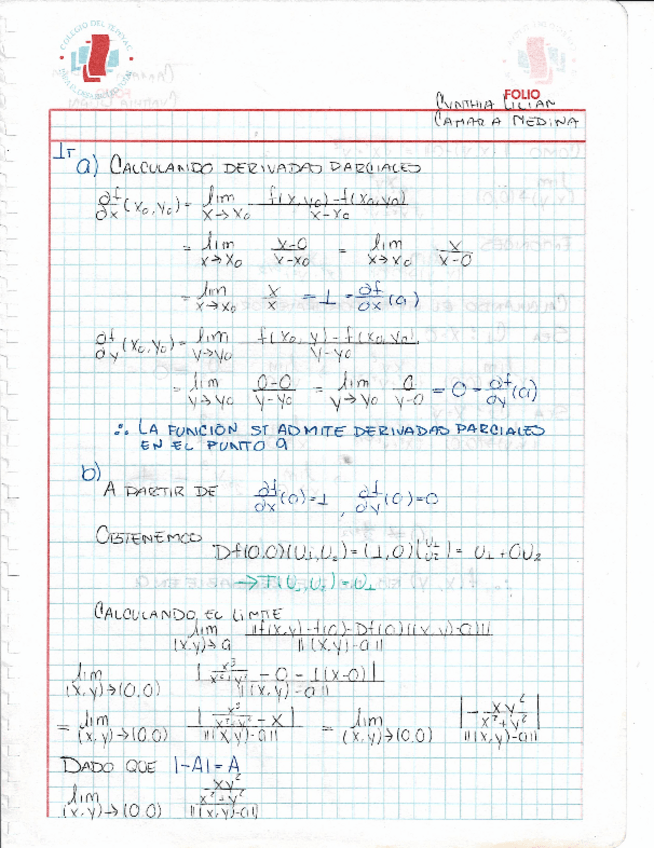 COLEGIO DEL TEPEYAC
FOLIO
CYNTHIA LILIAN
CAMARA MEDINA
1r a) CALCULANDO DERIVADAS PARCIALES
∂f/∂x (x₀, y₀) = lim x→x₀ (f(x, y₀) - f(x₀, y₀))/(x - x₀)
= lim x→x₀ (x-0)/(x-x₀) = lim x→x₀ x/(x-0)
= lim x→x₀ x/x = 1 = ∂f/∂x (a)
∂f/∂y (x₀, y₀) = lim y→y₀ (f(x₀, y) - f(x₀, y₀))/(y - y₀)
= lim y→y₀ (0-0)/(y-y₀) = lim y→y₀ 0/(y-0) = 0 = ∂f/∂y (a)
∴ LA FUNCIÓN SI ADMITE DERIVADAS PARCIALES
EN EL PUNTO a
b)
A PARTIR DE ∂f/∂x (0) = 1 , ∂f/∂y (0) = 0
OBTENEMOS Df(0,0)(U₁,U₂) = (1,0)(U₁ U₂) = U₁ + 0U₂
→ T(U₁,U₂) = U₁
CALCULANDO EL LIMITE
lim (x,y)→a ||f(x,y) - f(a) - Df(a)((x,y)-a)|| / ||(x,y)-a||
lim (x,y)→(0,0) |x³/(x²+y²) - 0 - 1(x-0)| / ||(x,y)-a||
= lim (x,y)→(0,0) |x³/(x²+y²) - x| / ||(x,y)-a|| = lim (x,y)→(0,0) |- xy²/(x²+y²)| / ||(x,y)-a||
DADO QUE |-A| = A
lim (x,y)→(0,0) (xy²/(x²+y²)) / ||(x,y)-a||